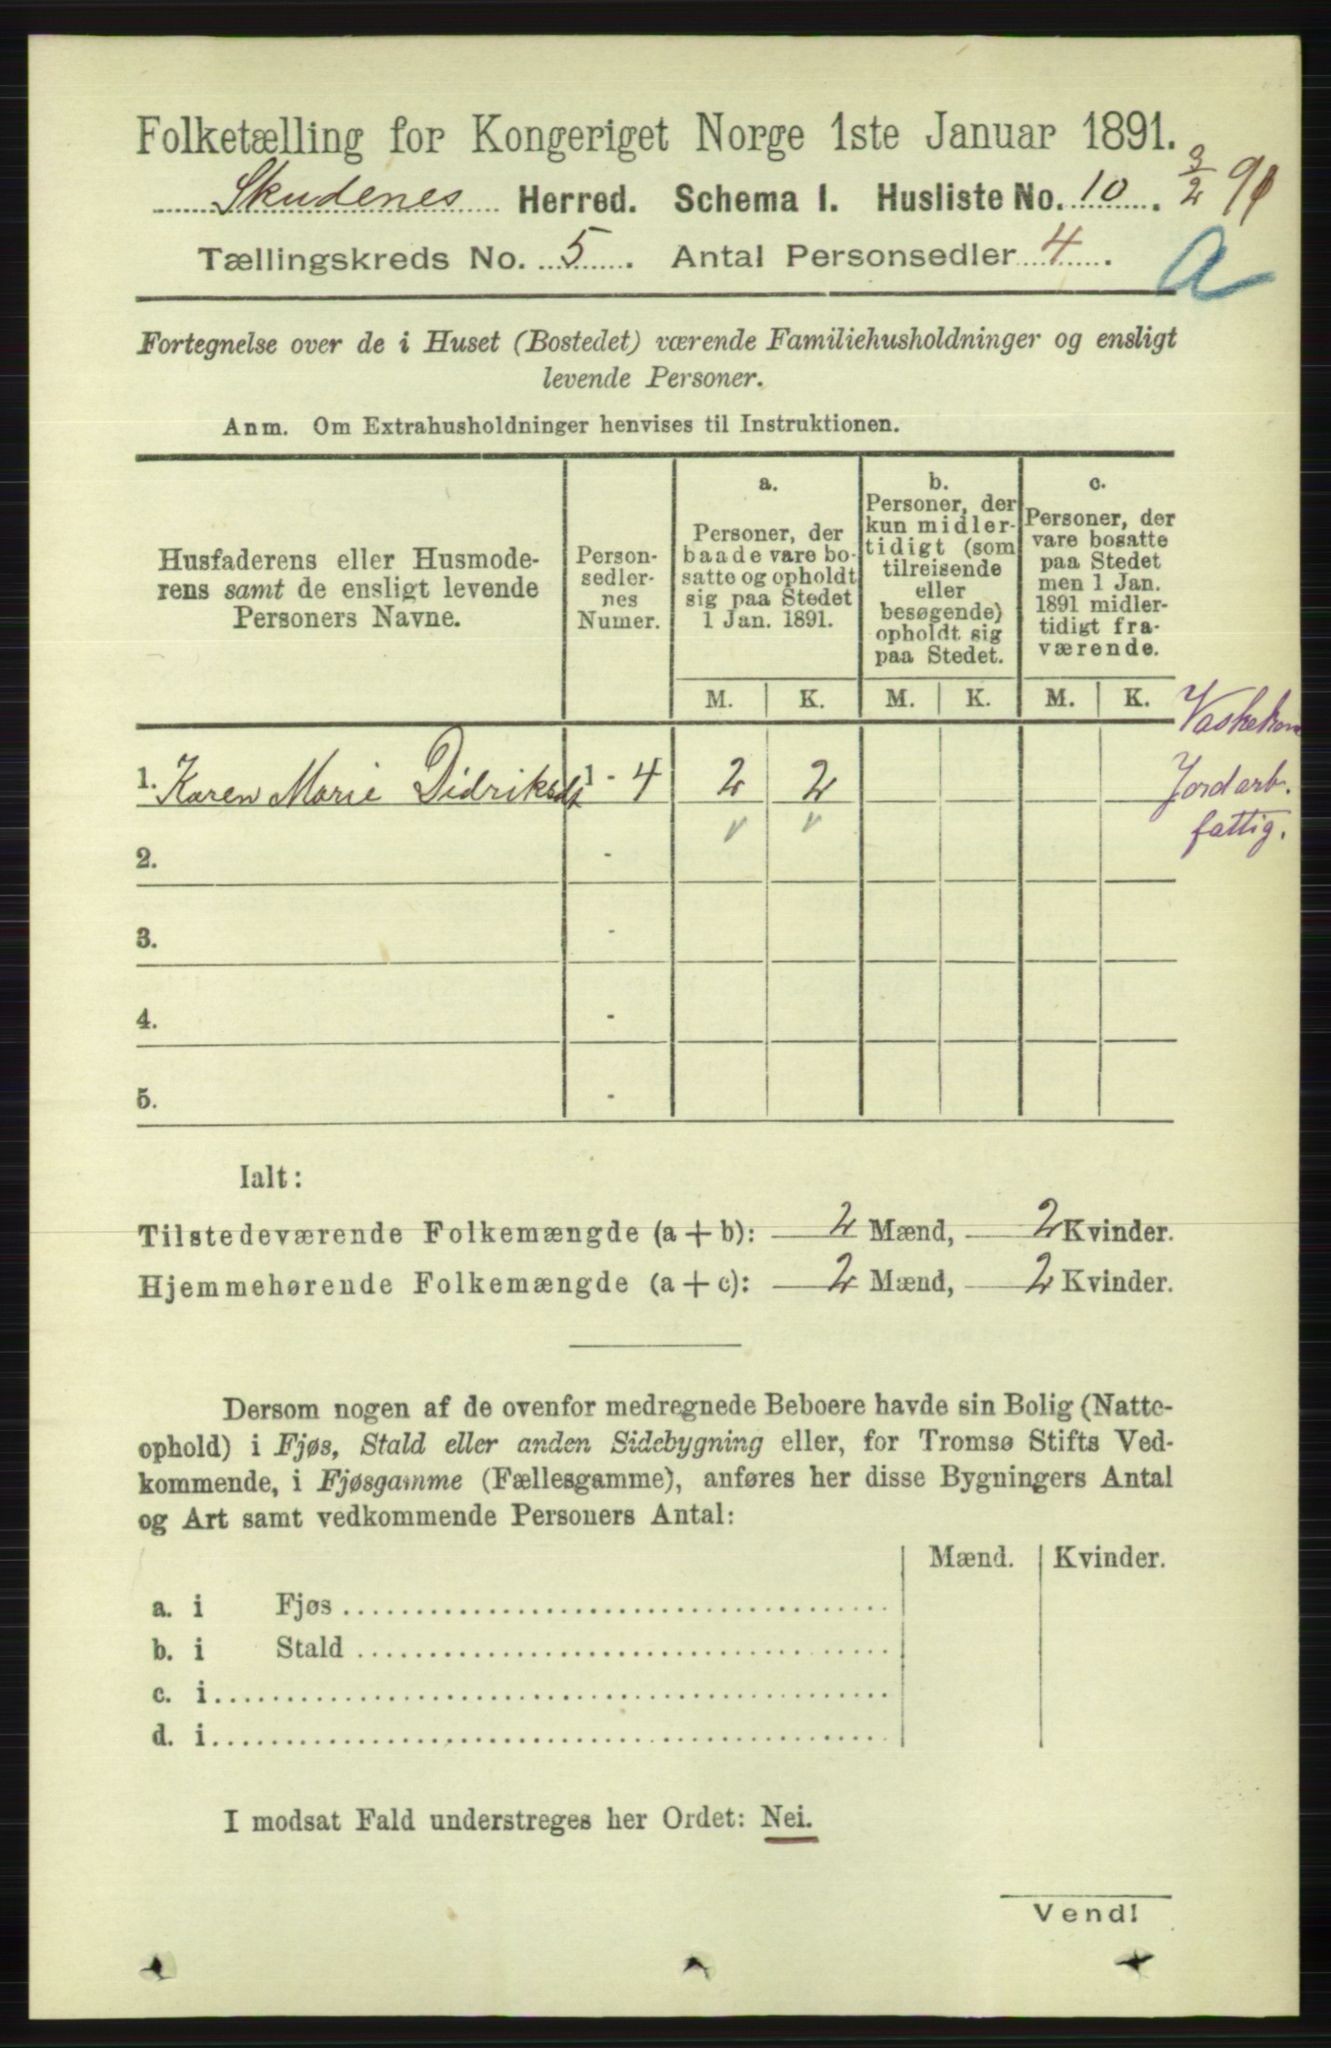 Folketælling for Kongeriget Norge 1ste Januar 1891.
Skudenes Herred. Schema I. Husliste No. 10. 3/2 91
Tællingskreds No. 5. Antal Personsedler 4.
a
Fortegnelse over de i Huset (Bostedet) værende Familiehusholdninger og ensligt
levende Personer.
Anm. Om Extrahusholdninger henvises til Instruktionen.
Husfaderens eller Husmode-
rens samt de ensligt levende
Personers Navne.
Person-
sedler-
nes
Numer.
a.
Personer, der
baade vare bo-
satte og opholdt
sig paa Stedet
1 Jan. 1891.
b.
Personer, der
kun midler-
tidigt (som
tilreisende
eller
besøgende)
opholdt sig
paa Stedet.
c.
Personer, der
vare bosatte
paa Stedet
men 1 Jan.
1891 midler-
tidigt fra-
værende.
M. K. M. K. M. K.
1. Karen Marie Didriksdt 1 - 4 2 2
Vaskekone
Jordarb.
fattig.
2. -
3. -
4. -
5. -
Ialt:
Tilstedeværende Folkemængde (a + b): 2 Mænd, 2 Kvinder.
Hjemmehørende Folkemængde (a + c): 2 Mænd, 2 Kvinder.
Dersom nogen af de ovenfor medregnede Beboere havde sin Bolig (Natte-
ophold) i Fjøs, Stald eller anden Sidebygning eller, for Tromsø Stifts Ved-
kommende, i Fjøsgamme (Fællesgamme), anføres her disse Bygningers Antal
og Art samt vedkommende Personers Antal:
Mænd. Kvinder.
a. i Fjøs
b. i Stald
c. i
d. i
I modsat Fald understreges her Ordet: Nei.
Vend!